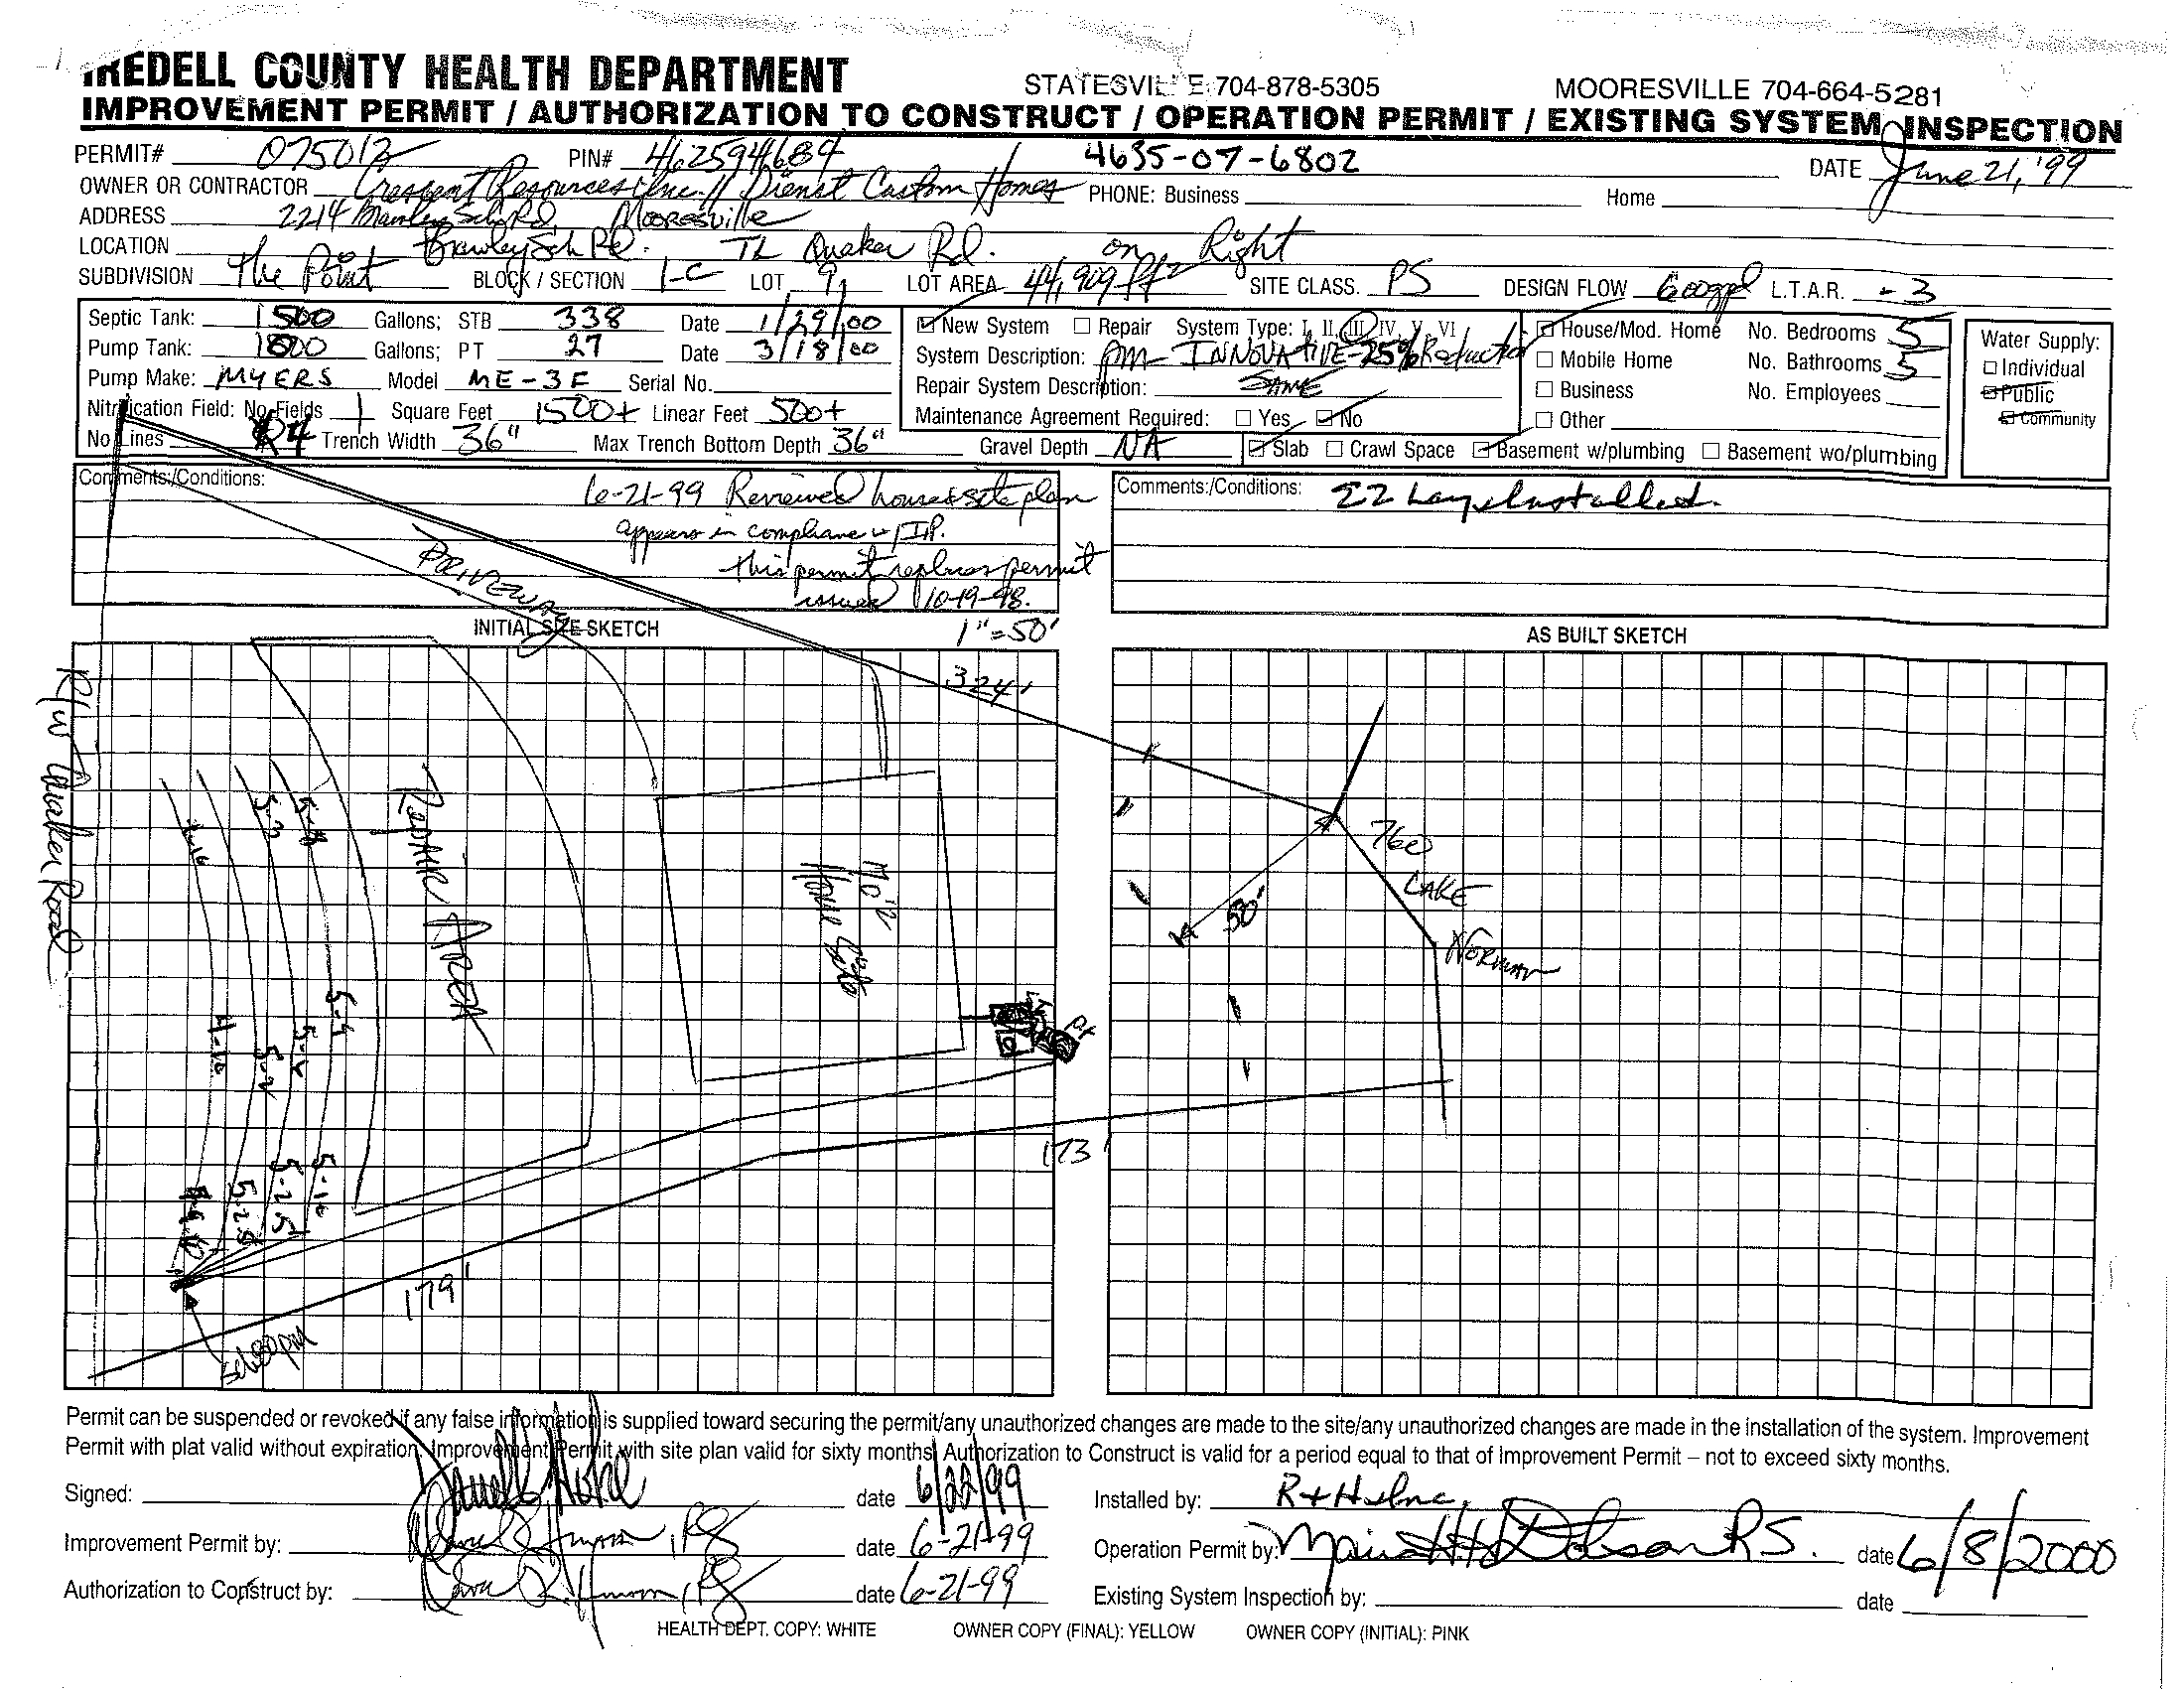 IREDELL COUNTY HEALTH DEPARTMENT STATESVILLE 704-878-5305 MOORESVILLE 704-664-5281
IMPROVEMENT PERMIT / AUTHORIZATION TO CONSTRUCT / OPERATION PERMIT / EXISTING SYSTEM INSPECTION
PERMIT# 075012 PIN# 4625944684 4635-07-6802 DATE June 21, '99
OWNER OR CONTRACTOR Crescent Resources, Inc. // Dienst Custom Homes PHONE: Business Home
ADDRESS 2214 Brawley Sch Rd, Mooresville
LOCATION Brawley Sch Rd. TL Quaker Rd. on Right
SUBDIVISION The Point BLOCK / SECTION 1-C LOT 91 LOT AREA 44,909 ft2 SITE CLASS. PS DESIGN FLOW 600gpd L.T.A.R. .3
Septic Tank: 1500 Gallons; STB 338 Date 1/29/00
Pump Tank: 1800 Gallons; PT 27 Date 3/18/00
Pump Make: MYERS Model ME-3F Serial No.
Nitrification Field: No. Fields 1 Square Feet 1500+ Linear Feet 500+
No Lines 4 Trench Width 36" Max Trench Bottom Depth 36" Gravel Depth NA
New System Repair System Type: I, II, III, IV, V, VI
System Description: Pm- INNOVATIVE-25% Reduction
Repair System Description: SAME
Maintenance Agreement Required: Yes No
House/Mod. Home No. Bedrooms 5
Mobile Home No. Bathrooms 5
Business No. Employees
Other
Slab Crawl Space Basement w/plumbing Basement wo/plumbing
Water Supply:
Individual
Public
Community
Comments:/Conditions: 6-21-99 Reviewed house & site plan
appears in compliance w/ I.P.
this permit replaces permit
issued 10-19-98.
Comments:/Conditions: EZ Lay Installed.
DRIVEWAY
INITIAL SIZE SKETCH 1"=50'
AS BUILT SKETCH
R/W Quaker Road
324'
REPAIR AREA
House Site
760
LAKE
NORMAN
50'
PT
5-9
5-2
5-10
5-2.5
173'
179'
Permit can be suspended or revoked if any false information is supplied toward securing the permit/any unauthorized changes are made to the site/any unauthorized changes are made in the installation of the system. Improvement
Permit with plat valid without expiration. Improvement Permit with site plan valid for sixty months. Authorization to Construct is valid for a period equal to that of Improvement Permit – not to exceed sixty months.
Signed: date 6/22/99
Improvement Permit by: date 6-21-99
Authorization to Construct by: date 6-21-99
Installed by: R+H Inc.
Operation Permit by: Dobson RS. date 6/8/2000
Existing System Inspection by: date
HEALTH DEPT. COPY: WHITE OWNER COPY (FINAL): YELLOW OWNER COPY (INITIAL): PINK